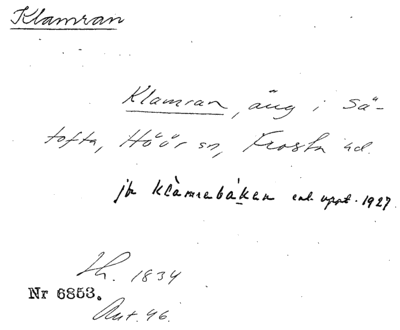 Klamran
Klamran, äng i Sä-
tofta, Höör sn, Frosta hd.
jfr klàmrebákan enl. uppt. 1927
Lh. 1834
Nr 6853.
Ant. 46.